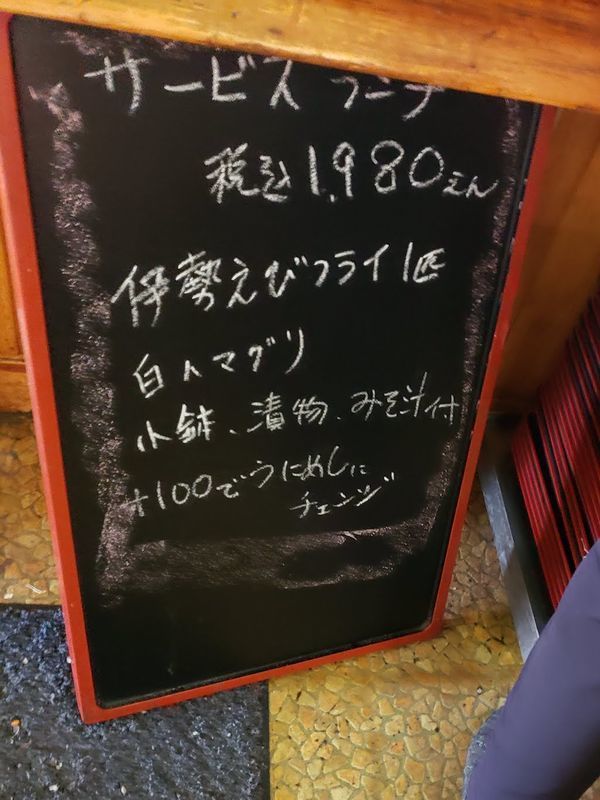 サービスランチ
税込1,980えん
伊勢えびフライ1匹
白ハマグリ
小鉢、漬物、みそ汁付
+100でうにめしに
チェンジ